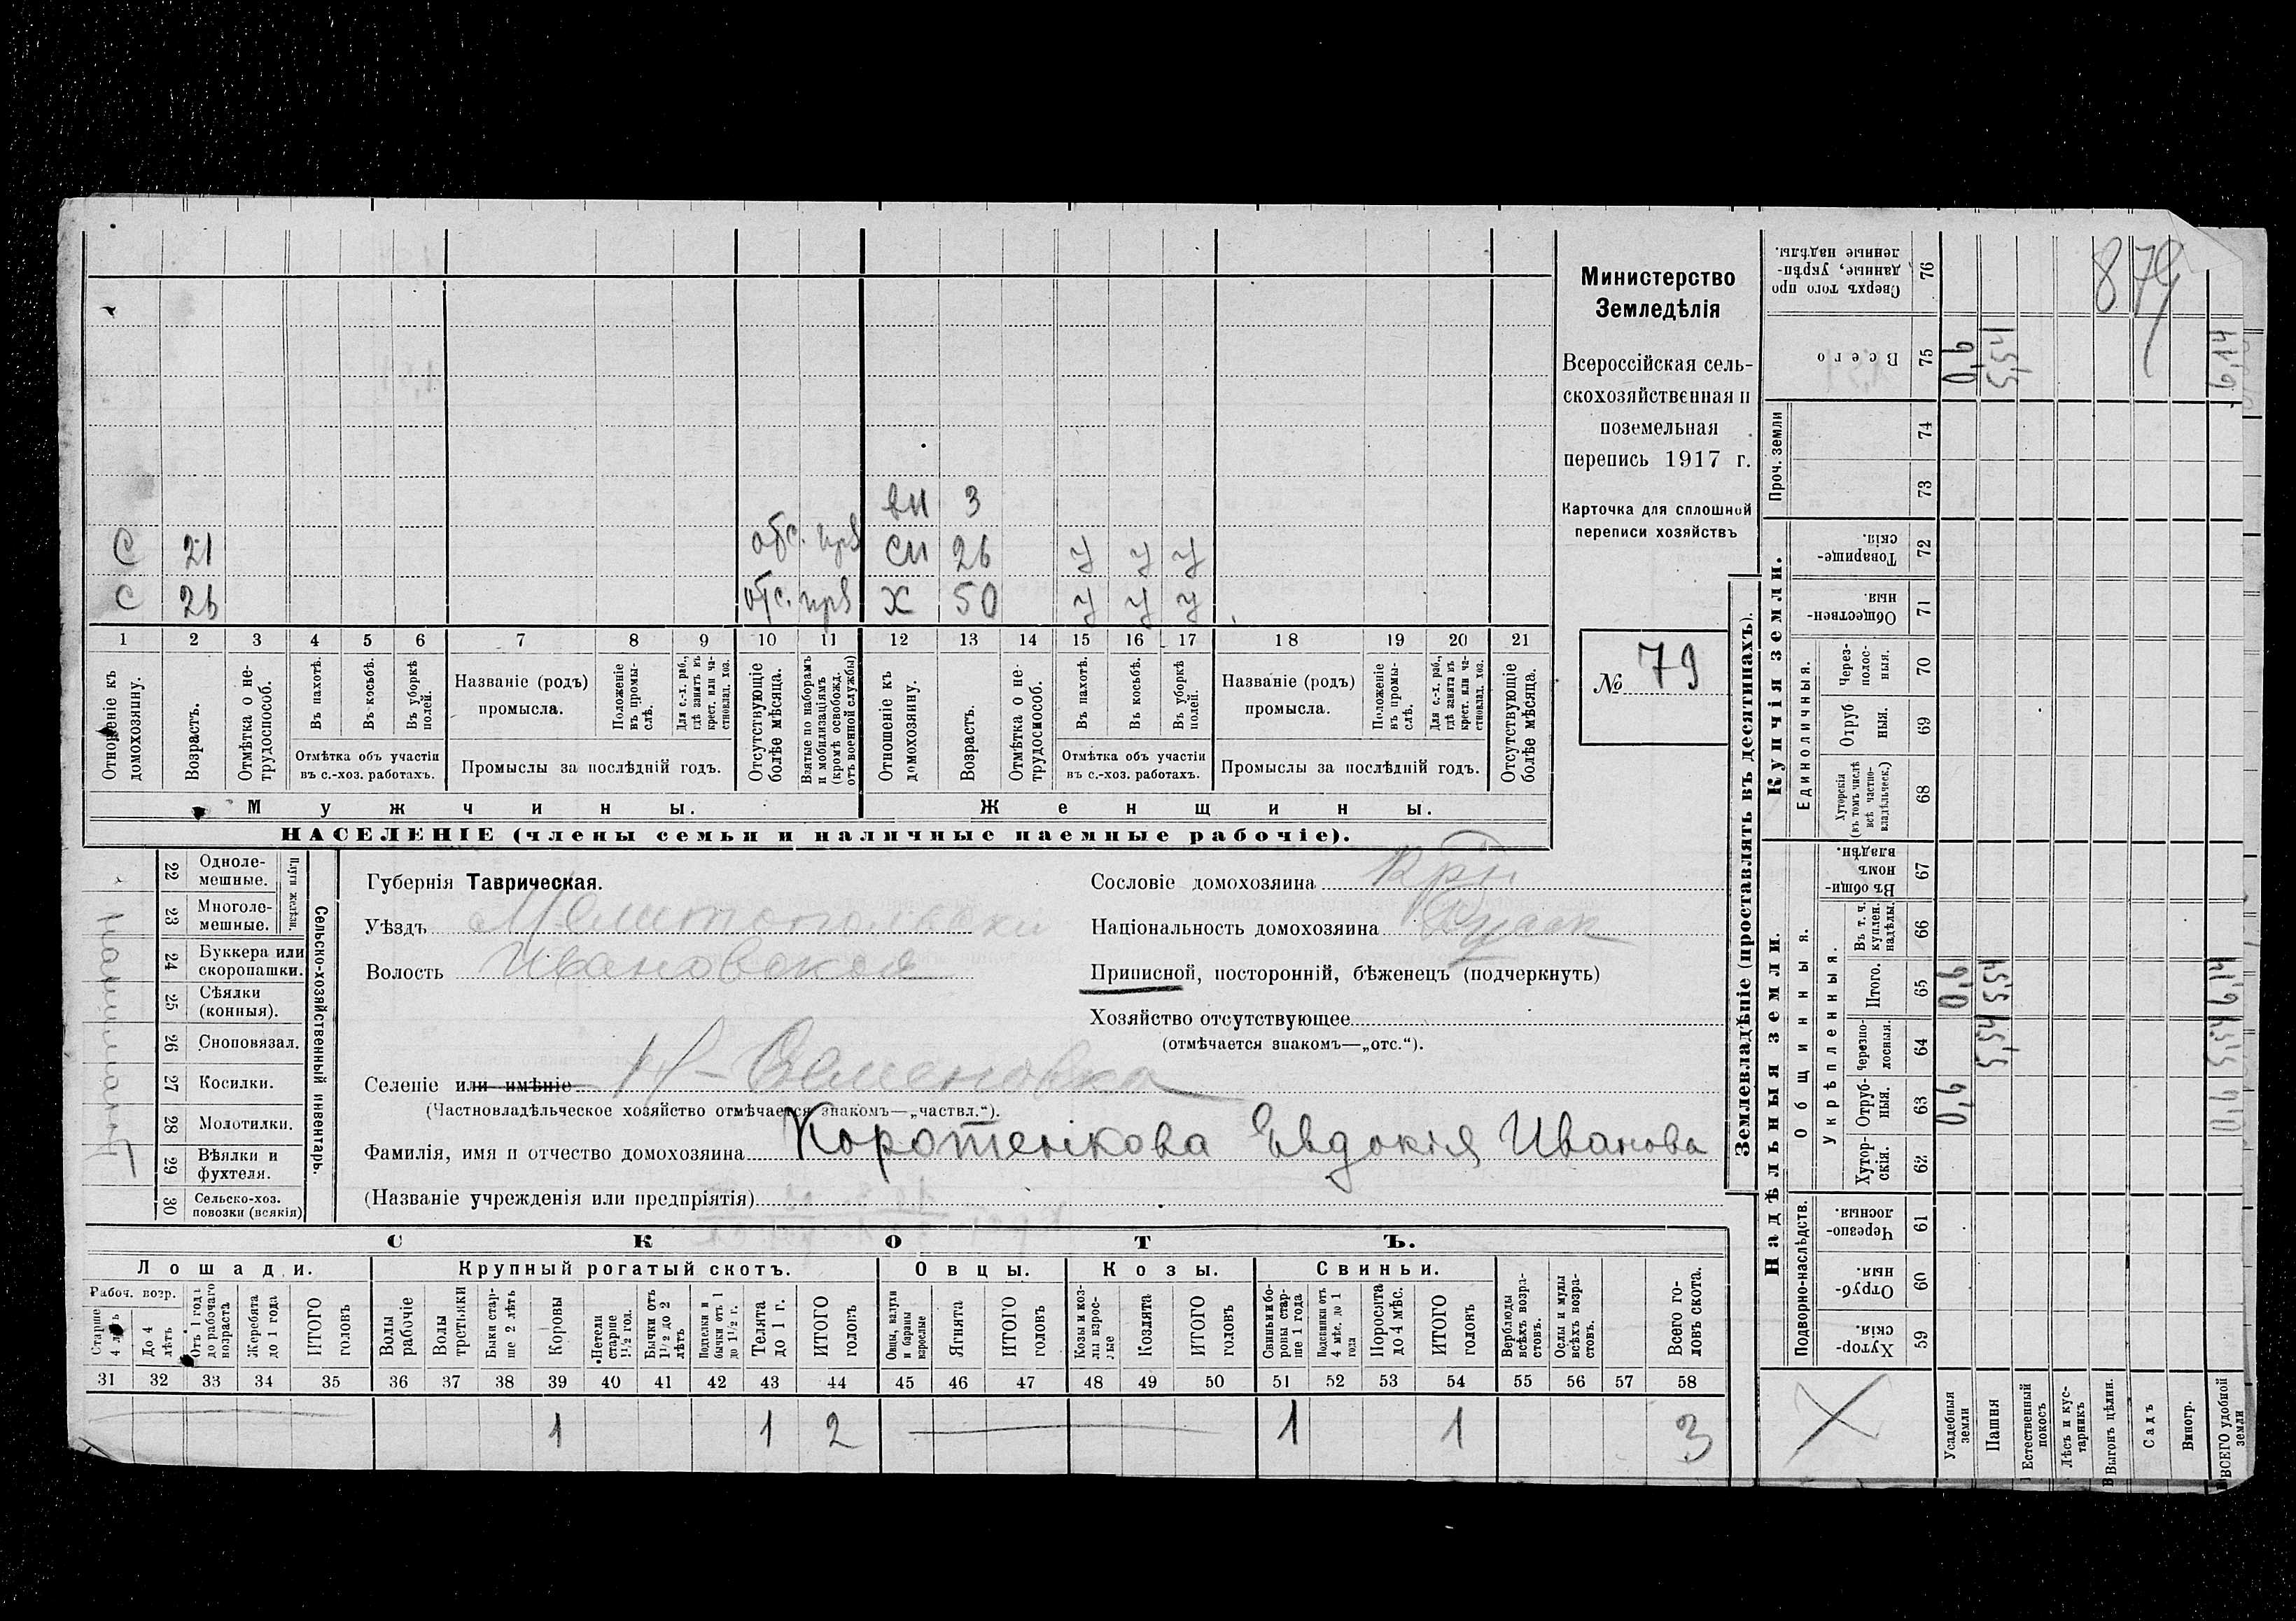 Министерство
Земледѣлія
Всероссійская сель-
скохозяйственная и
поземельная
перепись 1917 г.
Карточка для сплошной
переписи хозяйствъ
№ 79
879
вн 3
С 21 отс. прз сн 26 у у у
С 26 отс. прз Х 50 у у у
1 2 3 4 5 6 7 8 9 10 11 12 13 14 15 16 17 18 19 20 21
Отношеніе къ домохозяину.
Возрастъ.
Отмѣтка о не-трудоспособ.
Въ пахотѣ.
Въ косьбѣ.
Въ уборкѣ полей.
Отмѣтка объ участіи въ с.-хоз. работахъ.
Названіе (родъ) промысла.
Положеніе въ промы-слѣ.
Для с.-х. раб., гдѣ занятъ въ крест. или ча-стновлад. хоз.
Промыслы за послѣдній годъ.
Отсутствующіе болѣе мѣсяца.
Взятые по наборамъ и мобилизаціямъ (кромѣ освобожд. отъ военной службы)
Отношеніе къ домохозяину.
Возрастъ.
Отмѣтка о не-трудоспособ.
Въ пахотѣ.
Въ косьбѣ.
Въ уборкѣ полей.
Отмѣтка объ участіи въ с.-хоз. работахъ.
Названіе (родъ) промысла.
Положеніе въ промы-слѣ.
Для с.-х. раб., гдѣ занята въ крест. или ча-стновлад. хоз.
Промыслы за послѣдній годъ.
Отсутствующіе болѣе мѣсяца.
Мужчины. Женщины.
НАСЕЛЕНІЕ (члены семьи и наличные наемные рабочіе).
Сельско-хозяйственный инвентарь.
Плуги желѣзн.
22 Одноле-мешные.
23 Многоле-мешные.
24 Буккера или скоропашки.
25 Сѣялки (конныя).
26 Сноповязал.
27 Косилки.
28 Молотилки.
29 Вѣялки и фухтеля.
30 Сельско-хоз. повозки (всякія)
Губернія Таврическая.
Уѣздъ Мелитопольски
Волость Ивановская
Селеніе или имѣніе Н-Семеновка
(Частновладѣльческое хозяйство отмѣчается знакомъ—„частвл.“).
Фамилія, имя и отчество домохозяина Коротенкова Евдокія Иванова
(Названіе учрежденія или предпріятія)
Сословіе домохозяина Крн
Національность домохозяина Русск
Приписной, посторонній, бѣженецъ (подчеркнуть)
Хозяйство отсутствующее
(отмѣчается знакомъ—„отс.“).
СКОТЪ.
Лошади. Крупный рогатый скотъ. Овцы. Козы. Свиньи.
Рабоч. возр.
Старше 4 лѣтъ
До 4 лѣтъ
Отъ 1 года до рабочаго возраста
Жеребята до 1 года
ИТОГО головъ
Волы рабочіе
Волы третьяки
Быки стар-ше 2 лѣтъ
Коровы
Нетели старше 1½ год.
Бычки отъ 1½ до 2 лѣтъ
Подтелки и бычки отъ 1 до 1½ г.
Телята до 1 г.
ИТОГО головъ
Овцы, валухи и бараны взрослые
Ягнята
ИТОГО головъ
Козы и коз-лы взрос-лые
Козлята
ИТОГО головъ
Свиньи и бо-ровы стар-ше 1 года
Подсвинки отъ 4 мѣс. до 1 года
Поросята до 4 мѣс.
ИТОГО головъ
Верблюды всѣхъ возра-стовъ.
Ослы и мулы всѣхъ возра-стовъ.
Всего го-ловъ скота.
31 32 33 34 35 36 37 38 39 40 41 42 43 44 45 46 47 48 49 50 51 52 53 54 55 56 57 58
1 1 2 1 1 3
Землевладѣніе (проставлять въ десятинахъ).
Надѣльныя земли. Купчія земли.
Подворно-наслѣдств.
Общинныя.
Укрѣпленныя.
Единоличныя.
Проч. земли
Хутор-скія. 59
Отруб-ныя. 60
Черезпо-лосныя. 61
Хутор-скія. 62
Отруб-ныя. 63
Черезпо-лосныя. 64
Итого. 65
Въ т. ч. куплен. надѣлы. 66
Въ общи-номъ владѣн. 67
Хуторскія (въ томъ числѣ всѣ частно-владѣльческ.) 68
Отруб-ныя. 69
Через-полос-ныя. 70
Обществен-ныя. 71
Товарище-скія. 72
73
74
Всего 75
Сверхъ того про-данные, укрѣп-ленные надѣлы. 76
Усадебныя земли 0,6 0,6 0,6
Пашня 5,54 5,54 5,54
Естественный покосъ
Лѣсъ и кус-тарникъ
Выгонъ цѣлин.
Садъ
Виногр.
ВСЕГО удобной земли 0,6 5,54 6,14 6,14